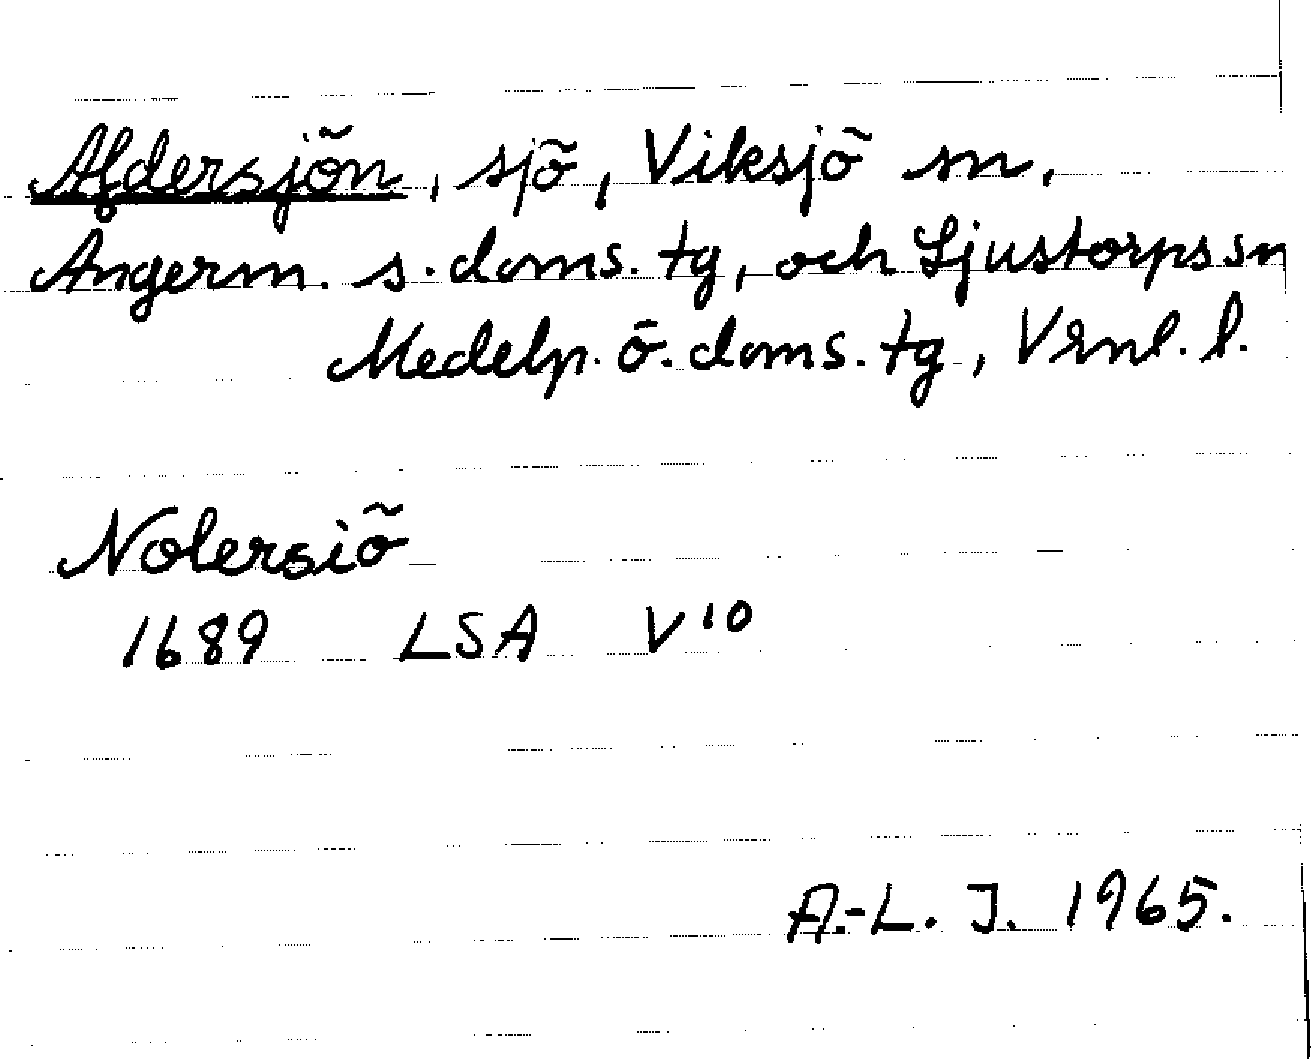 Afdersjön, sjö, Viksjö sn,
Ångerm. s. doms. tg, och Ljustorps sn
Medelp. ö. doms. tg, Vrnl. l.
Nolersiö
1689 LSA V 10
A.-L. J. 1965.